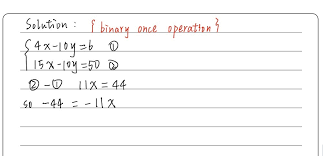 Solution: {binary once operation}
{4x-10y=6 ①
15x-10y=50 ②
②-① 11x=44
so -44 = -11x